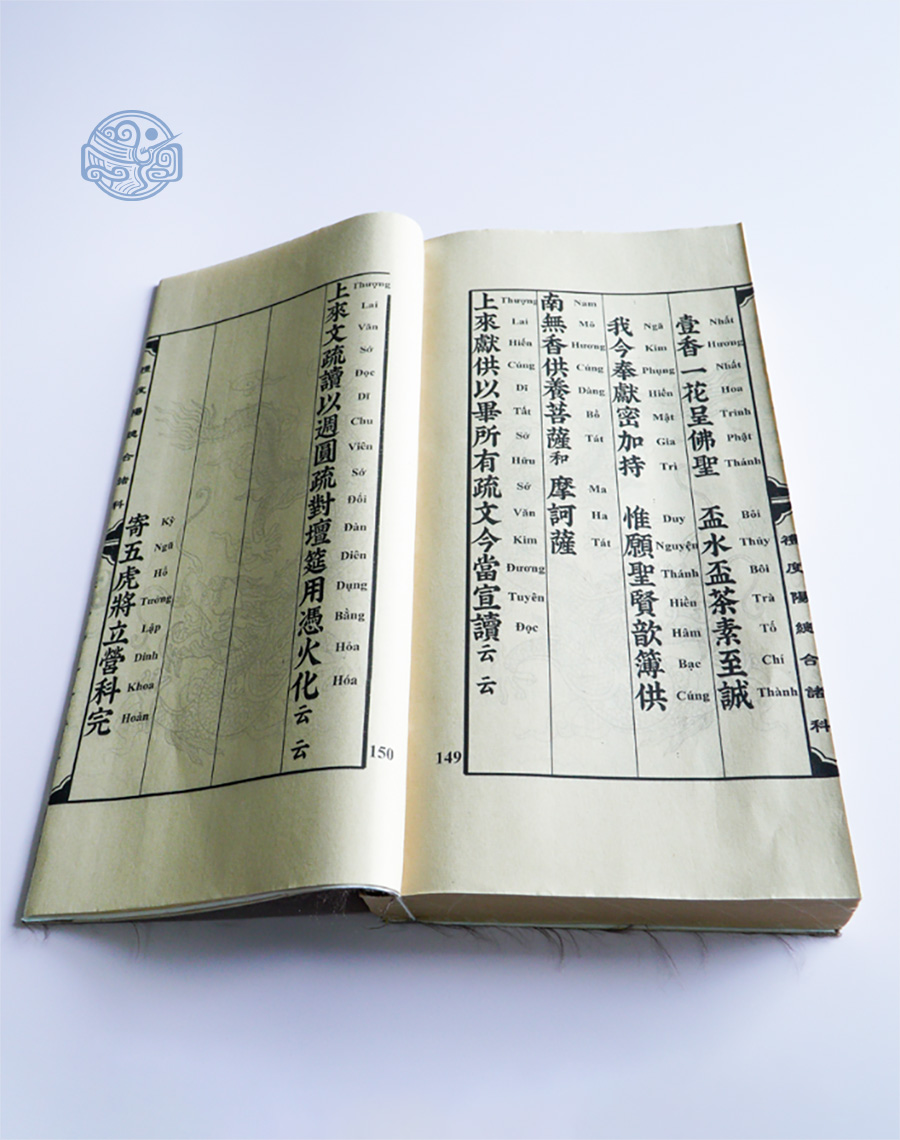 禮度陽總合諸科
壹香一花呈佛聖 盃水盃茶素至誠
Nhất Hương Nhất Hoa Trình Phật Thánh Bôi Thủy Bôi Trà Tố Chí Thành
我今奉獻密加持 惟願聖賢歆薄供
Ngã Kim Phụng Hiến Mật Gia Trì Duy Nguyện Thánh Hiền Hâm Bạc Cúng
南無香供養菩薩和 摩訶薩
Nam Mô Hương Cúng Dàng Bồ Tát Ma Ha Tát
上來獻供以畢所有疏文今當宣讀云云
Thượng Lai Hiến Cúng Dĩ Tất Sở Hữu Sớ Văn Kim Đương Tuyên Đọc
149
上來文疏讀以週圓疏對壇筵用憑火化云云
Thượng Lai Văn Sớ Đọc Dĩ Chu Viên Sớ Đối Đàn Diên Dụng Bằng Hỏa Hóa
寄五虎將立營科完
Ký Ngũ Hổ Tướng Lập Dinh Khoa Hoàn
禮度陽總合諸科
150